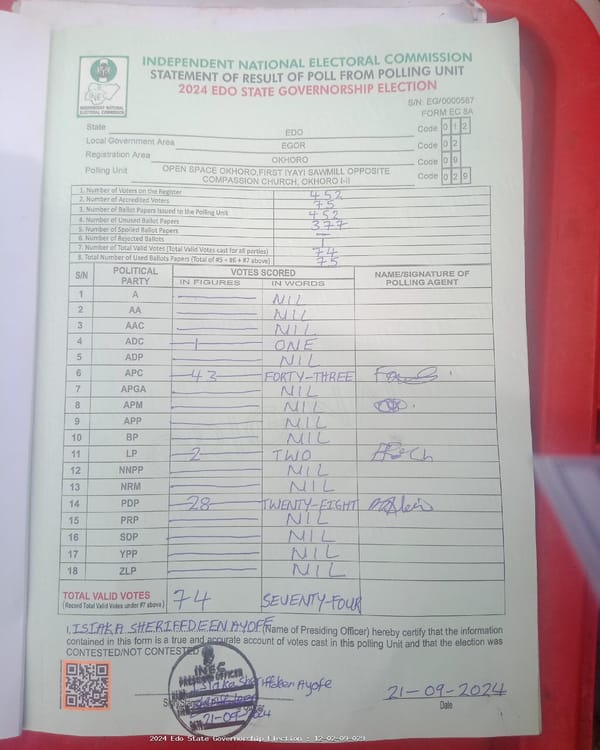 INDEPENDENT NATIONAL ELECTORAL COMMISSION
STATEMENT OF RESULT OF POLL FROM POLLING UNIT
2024 EDO STATE GOVERNORSHIP ELECTION
INEC
INDEPENDENT NATIONAL
ELECTORAL COMMISSION
S/N: EG/0000587
FORM EC 8A
State EDO Code 0 1 2
Local Government Area EGOR Code 0 2
Registration Area OKHORO Code 0 9
Polling Unit OPEN SPACE OKHORO,FIRST IYAYI SAWMILL OPPOSITE COMPASSION CHURCH, OKHORO I-II Code 0 2 9
1. Number of Voters on the Register 452
2. Number of Accredited Voters 75
3. Number of Ballot Papers Issued to the Polling Unit 452
4. Number of Unused Ballot Papers 377
5. Number of Spoiled Ballot Papers —
6. Number of Rejected Ballots 1
7. Number of Total Valid Votes (Total Valid Votes cast for all parties) 74
8. Total Number of Used Ballots Papers (Total of #5 + #6 + #7 above) 75
S/N POLITICAL PARTY VOTES SCORED NAME/SIGNATURE OF POLLING AGENT
IN FIGURES IN WORDS
1 A NIL
2 AA NIL
3 AAC NIL
4 ADC 1 ONE
5 ADP NIL
6 APC 43 FORTY-THREE
7 APGA NIL
8 APM NIL
9 APP NIL
10 BP NIL
11 LP 2 TWO
12 NNPP NIL
13 NRM NIL
14 PDP 28 TWENTY-EIGHT
15 PRP NIL
16 SDP NIL
17 YPP NIL
18 ZLP NIL
TOTAL VALID VOTES 74 SEVENTY-FOUR
(Record Total Valid Votes under #7 above)
I, ISIAKA SHERIFFDEEN AYOFE (Name of Presiding Officer) hereby certify that the information
contained in this form is a true and accurate account of votes cast in this polling Unit and that the election was
CONTESTED/NOT CONTESTED
INEC
PRESIDING OFFICER
21-09-2024
21-09-2024
Date
2024 Edo State Governorship Election - 12-02-09-029